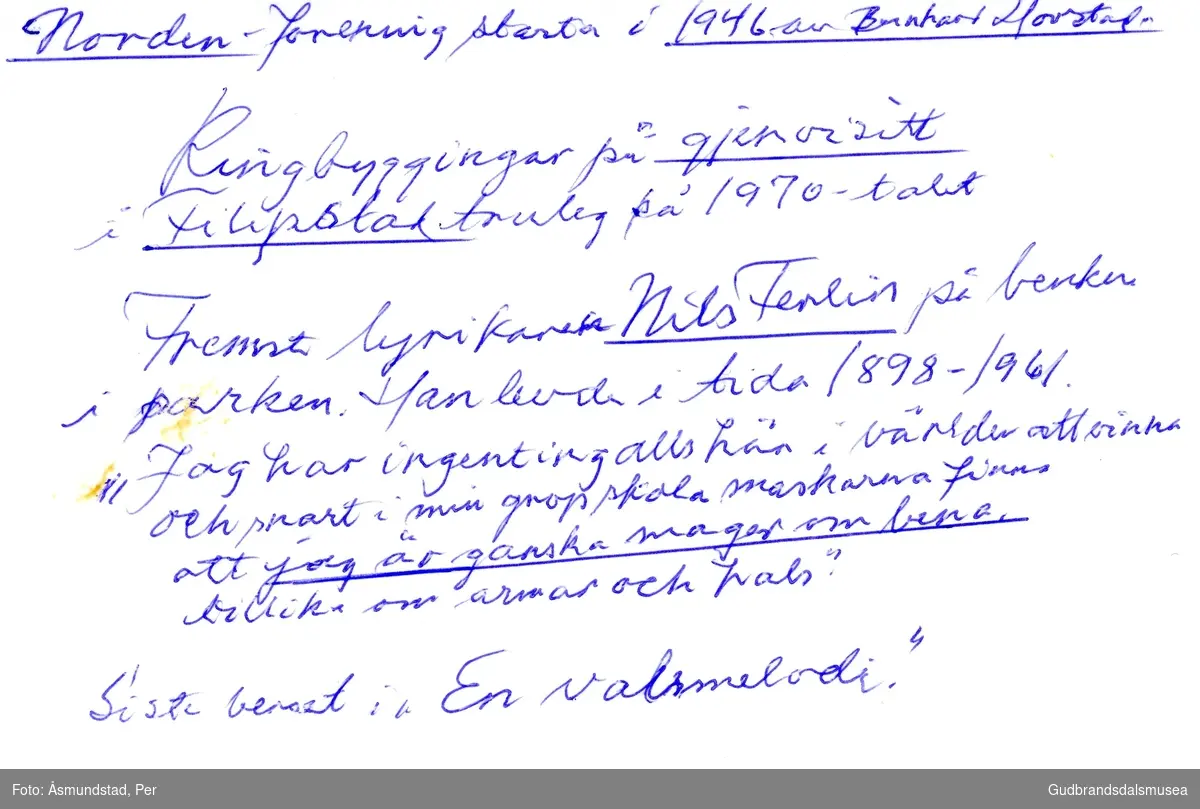 Norden-forening starta i 1946 av Bernhard Hovstad.
Ringbyggingar på gjenvisitt
i Filipstad truleg på 1970-talet
Fremst lyrikaren Nils Ferlin på benken
i parken. Han levde i tida 1898-1961.
"Jag har ingenting alls här i världen att vinna
och snart i min grop skola maskarna finna
att jag är ganska mager om bena.
tillika om armar och hals"
Siste verset i „En valsmelodi."
Foto: Åsmundstad, Per
Gudbrandsdalsmusea